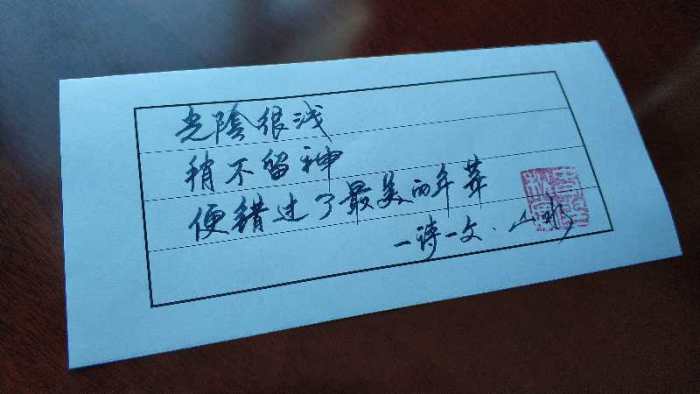 光陰很浅
稍不留神
便錯过了最美的年華
一诗一文·山水